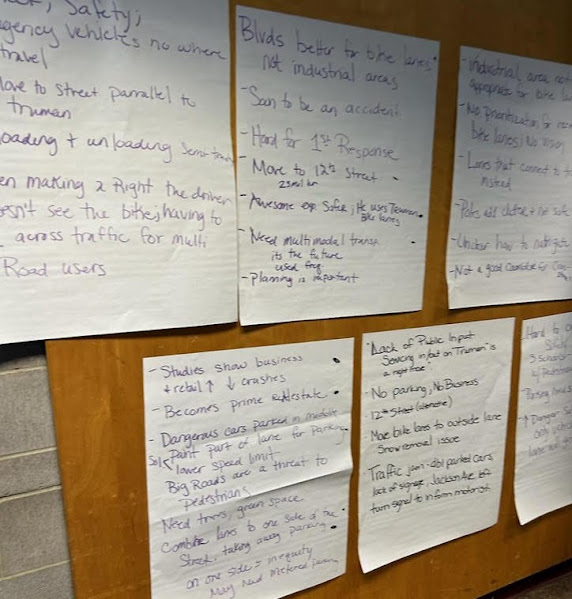 Safety;
agency vehicles no where
travel
Move to street parrallel to
truman
loading + unloading Semi-trucks
en making a Right the driver
doesn't see the bike; having to
across traffic for multi
Road users
Blvds better for bike lanes
not industrial areas
- Soon to be an accident
- Hard for 1st Response
- Move to 12th Street
25mi hr
- Awesome exp. Safer; He uses Truman
Bike lanes
- Need multimodal transp.
its the future
used freq.
- Planning is important
- industrial area not
appropriate for bike la
- No prioritization for
bike lanes; No
- Lanes that connect to
instead
- Poles add clutter + not safe
- Unclear how to navigate
- Not a good Candidate for
- Studies show business
+ retail ↑ ↓ crashes
- Becomes prime Real estate
- Dangerous cars parked in middle
Sol< paint part of lane for parking
lower speed limit
Big Roads are a threat to
pedestrians
Need trees, green space
Combine lanes to one side of the
Street, taking away parking
on one side = inequity
May need preferred parking
"Lack of Public Input
on Truman" is
a right hook
- No parking, No Business
- 12th Street (alternate)
- Move bike lanes to outside lane
Snow removal issue
Traffic jam - dbl parked cars
lack of signage, Jackson Ave left
turn signal to inform motorist
Hard to
Parking
↑ Danger
only
lane